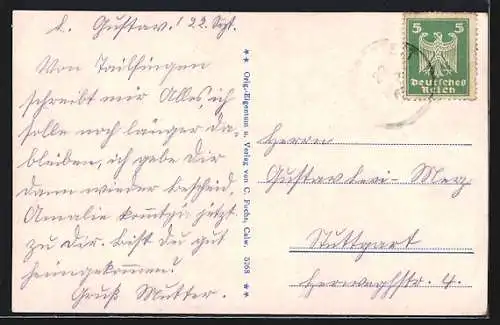 L. Gustav! 22. Sept.
Von Tailfingen
schreibt mir Alles, ich
solle noch länger da
bleiben, ich gebe Dir
dann wieder bescheid,
Amalie kommt ja jetzt
zu Dir. Bist Du gut
heimgekommen?
Gruß Mutter.
** Orig.-Eigentum u. Verlag von C. Fuchs, Calw. 5358 **
5 5
Deutsches
Reich
Herrn
Gustav
Stuttgart
Herweghstr. 4.